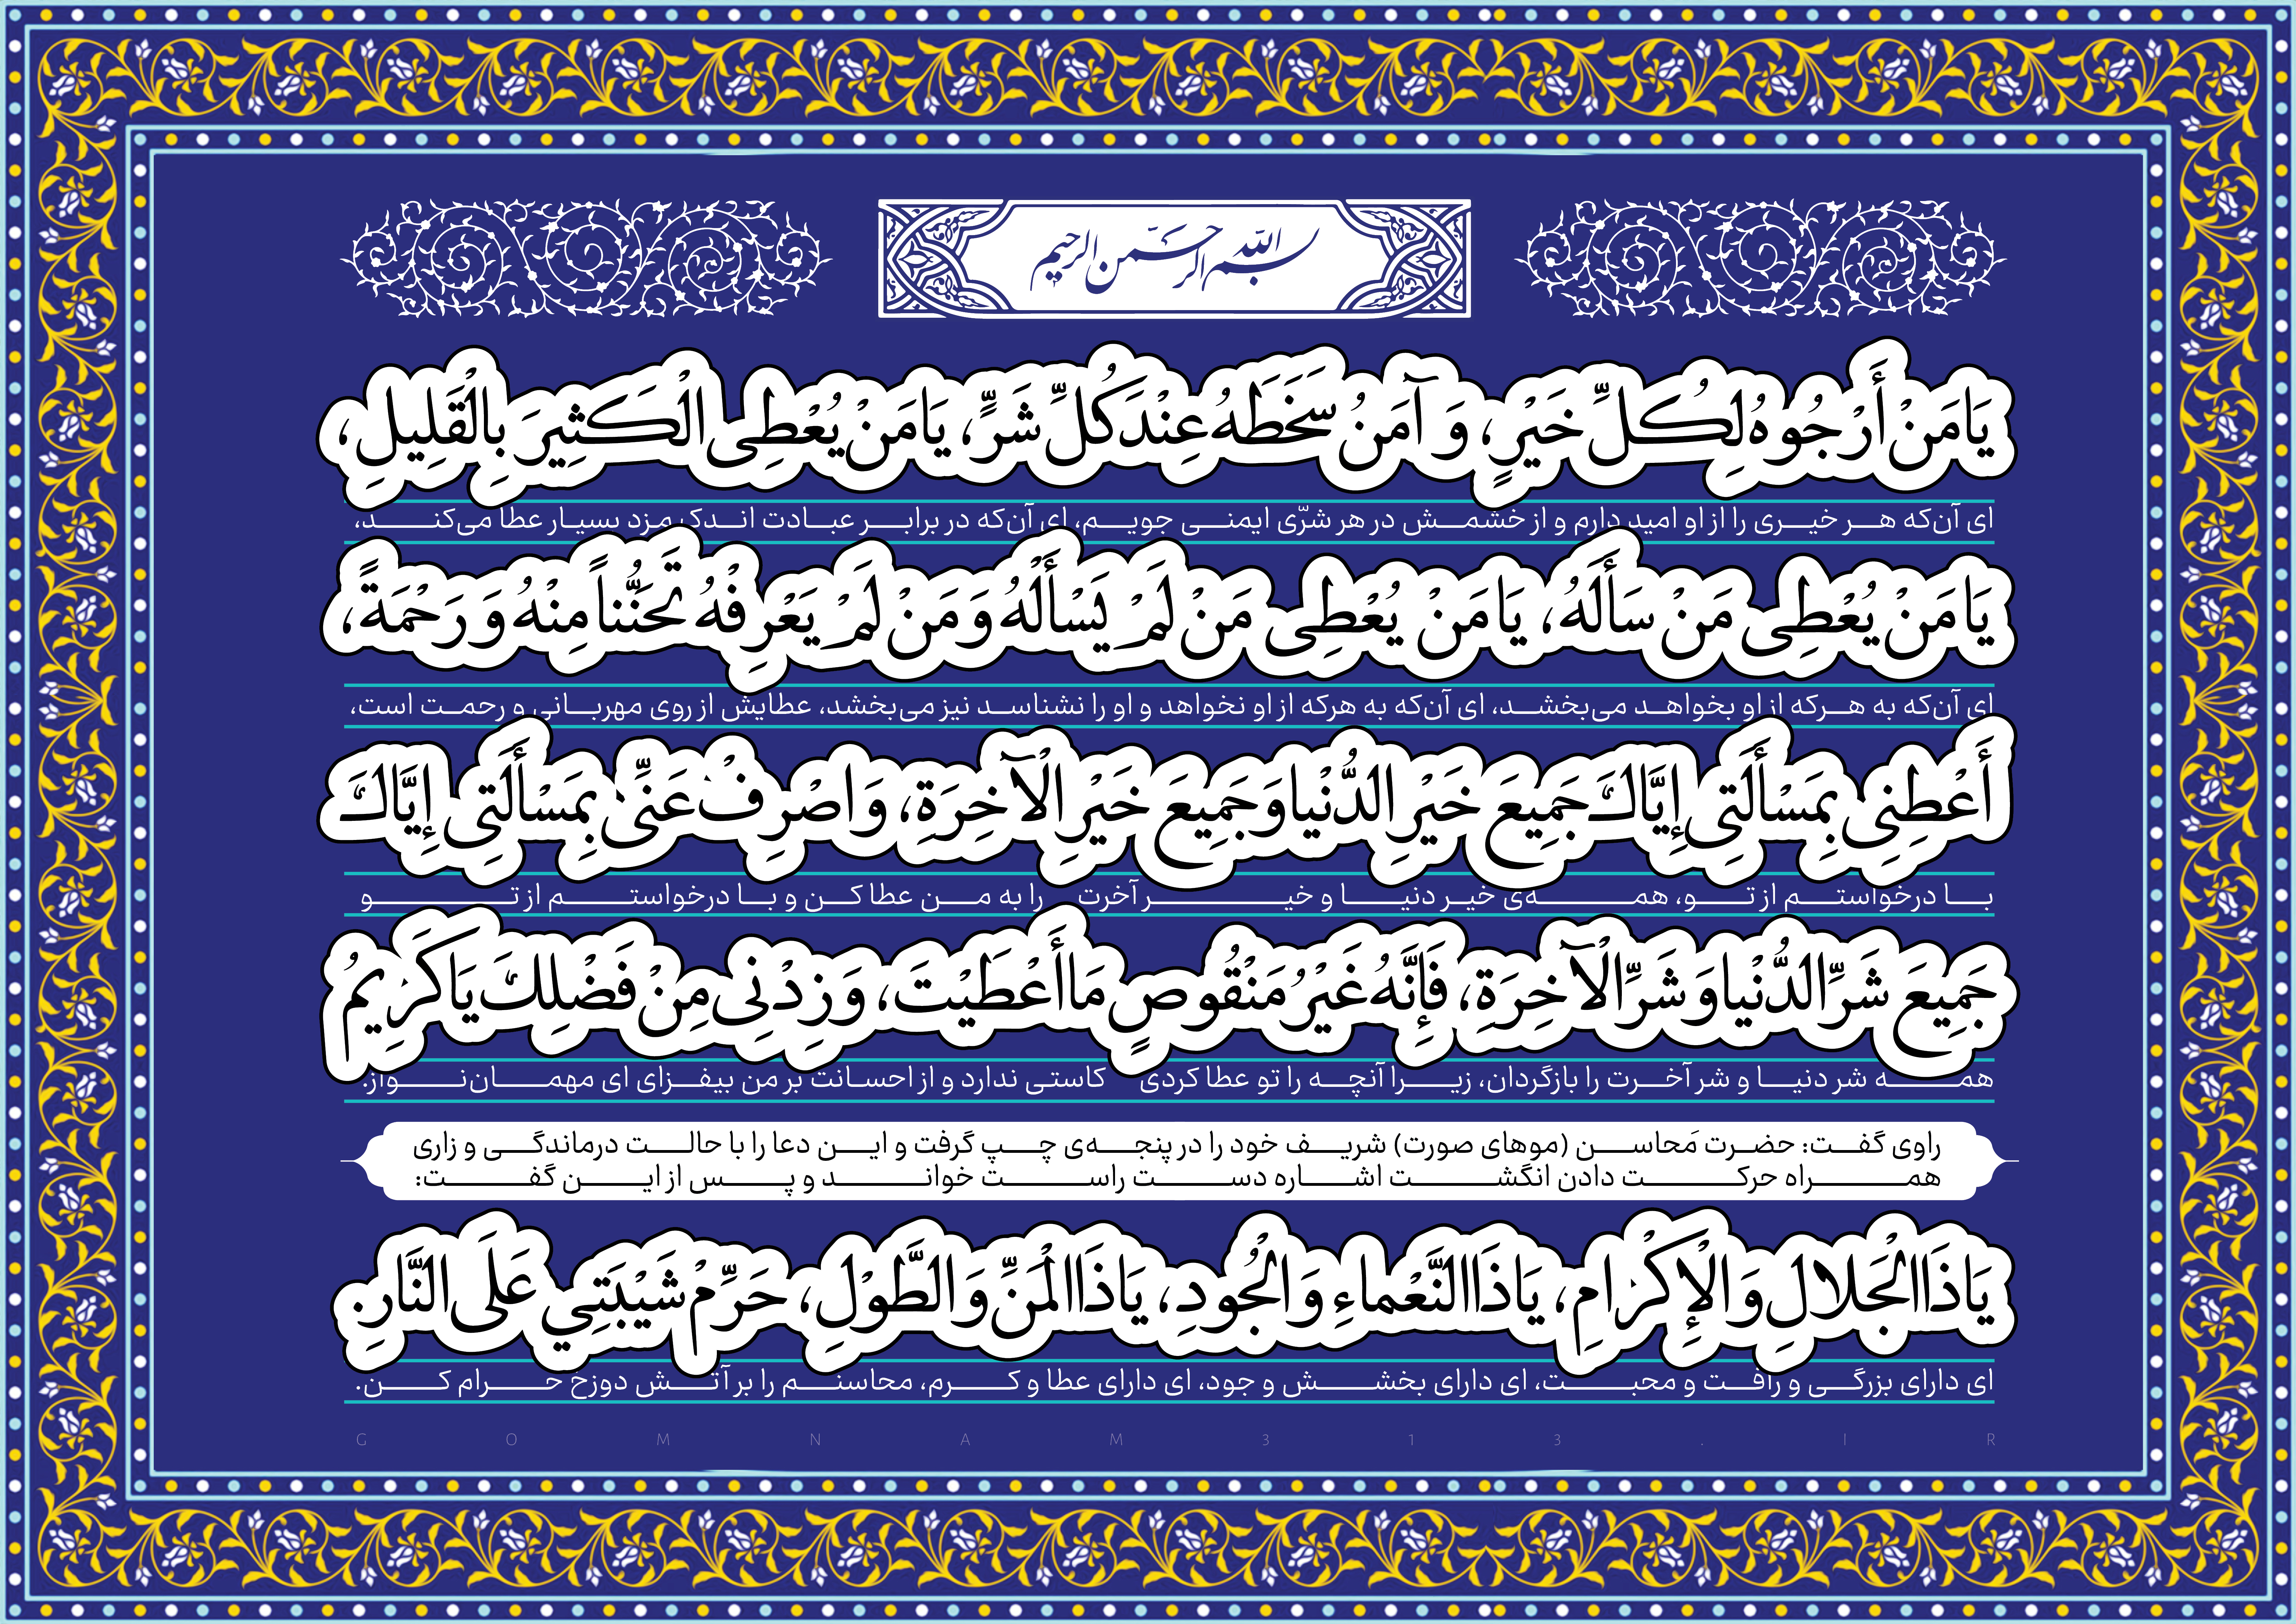 بسم الله الرحمن الرحیم
یَا مَنْ أَرْجُوهُ لِکُلِّ خَیْرٍ، وَ آمَنُ سَخَطَهُ عِنْدَ کُلِّ شَرٍّ، یَا مَنْ یُعْطِی الْکَثِیرَ بِالْقَلِیلِ،
ای آن‌که هر خیری را از او امید دارم و از خشمش در هر شرّی ایمنی جویم، ای آن‌که در برابر عبادت اندک مزد بسیار عطا می‌کند،
یَا مَنْ یُعْطِی مَنْ سَأَلَهُ، یَا مَنْ یُعْطِی مَنْ لَمْ یَسْأَلْهُ وَ مَنْ لَمْ یَعْرِفْهُ تَحَنُّناً مِنْهُ وَ رَحْمَةً،
ای آن‌که به هرکه از او بخواهد می‌بخشد، ای آن‌که به هرکه از او نخواهد و او را نشناسد نیز می‌بخشد، عطایش از روی مهربانی و رحمت است،
أَعْطِنِی بِمَسْأَلَتِی إِیَّاکَ جَمِیعَ خَیْرِ الدُّنْیا وَ جَمِیعَ خَیْرِ الْآخِرَةِ، وَ اصْرِفْ عَنِّی بِمَسْأَلَتِی إِیَّاکَ
با درخواستم از تو، همه‌ی خیر دنیا و خیر آخرت را به من عطا کن و با درخواستم از تو
جَمِیعَ شَرِّ الدُّنْیا وَ شَرِّ الْآخِرَةِ، فَإِنَّهُ غَیْرُ مَنْقُوصٍ مَا أَعْطَیْتَ، وَ زِدْنِی مِنْ فَضْلِکَ یَا کَرِیمُ
همه شر دنیا و شر آخرت را بازگردان، زیرا آنچه را تو عطا کردی کاستی ندارد و از احسانت بر من بیفزای ای مهمان‌نواز.
راوی گفت: حضرت مَحاسن (موهای صورت) شریف خود را در پنجه‌ی چپ گرفت و این دعا را با حالت درماندگی و زاری
همراه حرکت دادن انگشت اشاره دست راست خواند و پس از این گفت:
یَا ذَا الْجَلالِ وَ الْإِکْرَامِ، یَا ذَا النَّعْماءِ وَ الْجُودِ، یَا ذَا الْمَنِّ وَ الطَّوْلِ، حَرِّمْ شَیْبَتِي عَلَی النَّارِ.
ای دارای بزرگی و رأفت و محبت، ای دارای بخشش و جود، ای دارای عطا و کرم، محاسنم را بر آتش دوزخ حرام کن.
GOMNAM313.IR